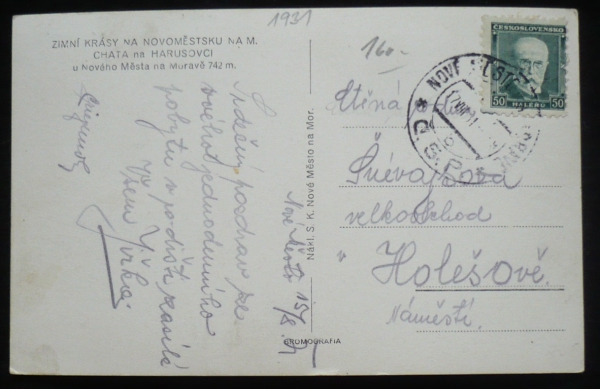 1931
160-
ZIMNÍ KRÁSY NA NOVOMĚSTSKU NA M.
CHATA na HARUSOVCI
u Nového Města na Moravě 742 m.
Srdečný pozdrav ze
svého jednodenního
pobytu v
Všem Jirka.
Nové Město 15/8 31
Nákl. S. K. Nové Město na Mor.
GRUMOGRAFIA
ČESKOSLOVENSKO
50 HALÉŘŮ 50
NOVÉ MĚSTO
Ctěná
velkoobchod
v Holešově.
Náměstí.